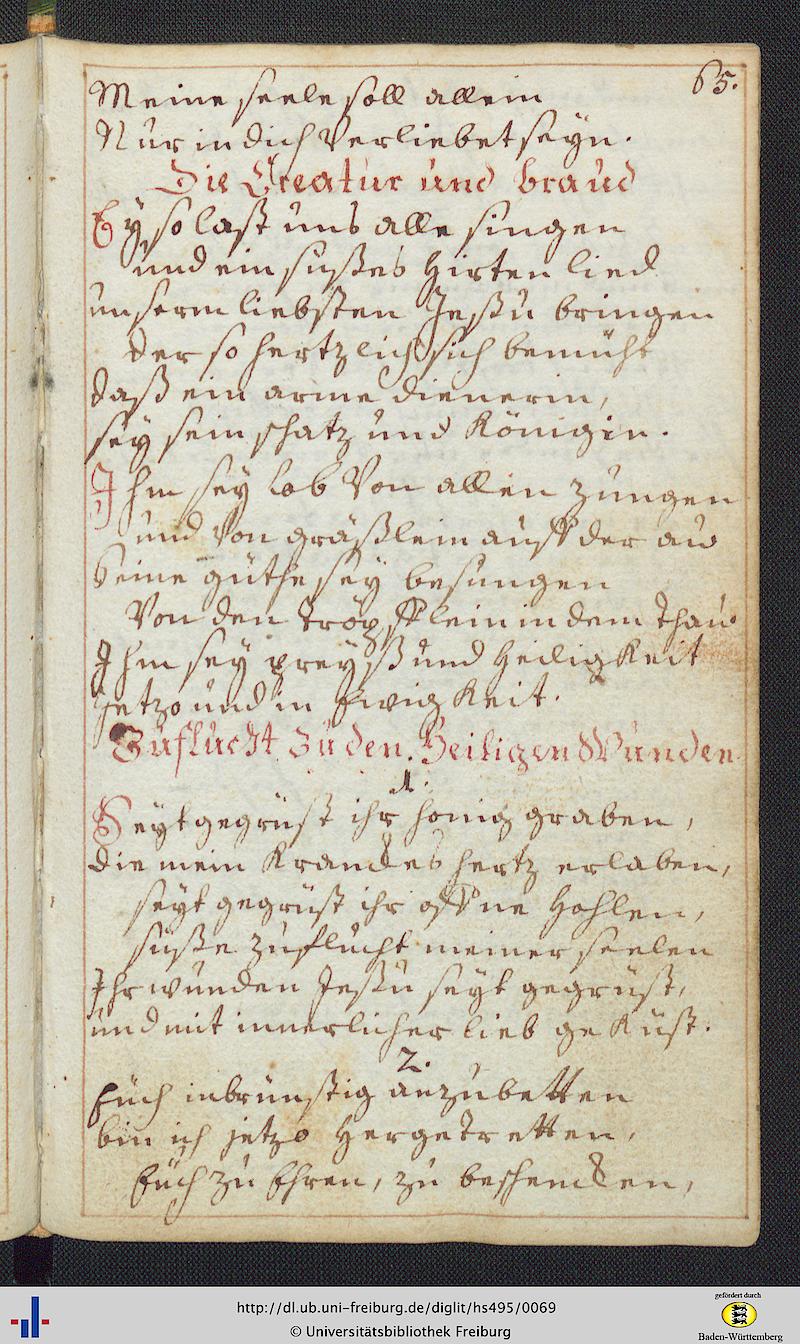 65.
Meine seele soll allein
Nur in dich verliebet seyn.
Die Creatur und braud
Ey so last uns alle singen
und ein süßes Hirten lied
unserm liebsten Jesu bringen
der so hertzlich sich bemüht
daß ein arme dienerin,
sey sein schatz und Königin.
Ihm sey lob von allen zungen
und von gräßlein auff der au
Seine güthe sey besungen
Von den tröpfflein in dem thau
Ihm sey preyß und Heiligkeit
Jetzo und in Ewigkeit.
Zuflucht zu den Heiligen Wunden
1.
Seyt gegrüst ihr honig graben,
die mein Kranckes hertz erlaben,
seyt gegrüst ihr offne Hohlen,
süße zuflucht meiner seelen
Ihr wunden Jesu seyt gegrüst,
und mit innerlicher lieb geküst.
2.
Euch inbrünstig anzubetten
bin ich jetzo Hergetretten,
Euch zu Ehren, zu beschencken,
http://dl.ub.uni-freiburg.de/diglit/hs495/0069
© Universitätsbibliothek Freiburg
gefördert durch
Baden-Württemberg